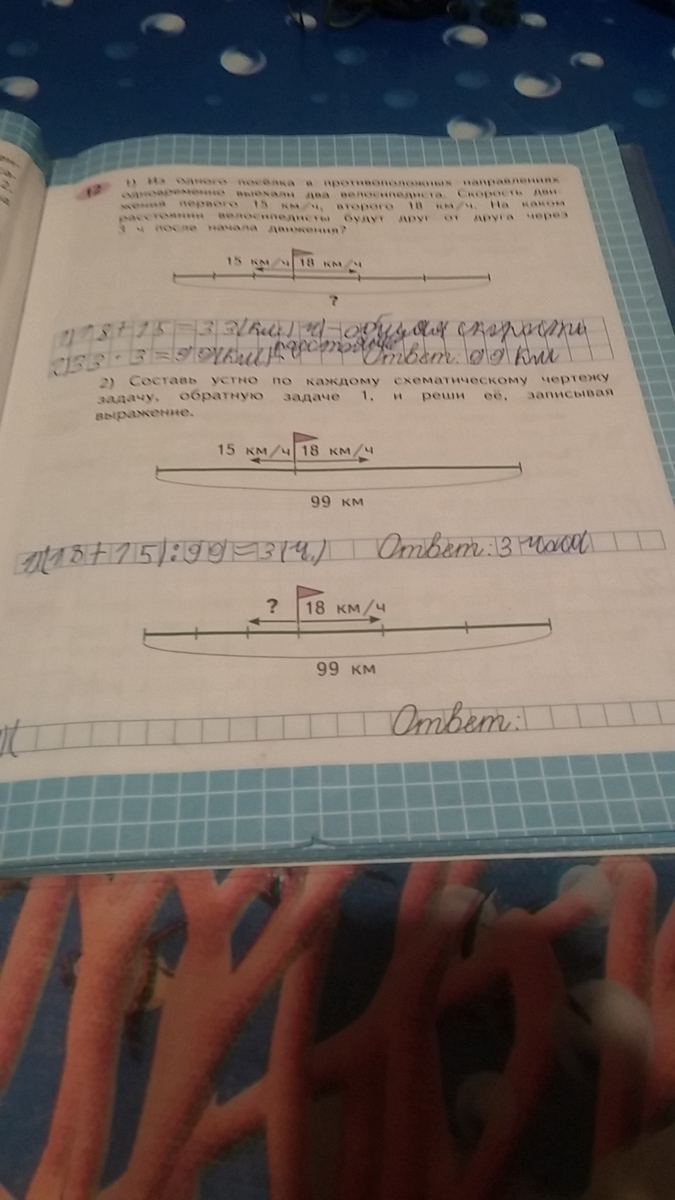 12
1) Из одного посёлка в противоположных направлениях
одновременно выехали два велосипедиста. Скорость дви-
жения первого 15 км/ч, второго 18 км/ч. На каком
расстоянии велосипедисты будут друг от друга через
3 ч после начала движения?
15 км/ч 18 км/ч
?
1) 18+15=33(км/ч)-общая скорость
2) 33·3=99(км) расстояние Ответ: 99 км
2) Составь устно по каждому схематическому чертежу
задачу, обратную задаче 1, и реши её, записывая
выражение.
15 км/ч 18 км/ч
99 км
1)(18+15):99=3(ч.) Ответ: 3 часа
? 18 км/ч
99 км
Ответ: